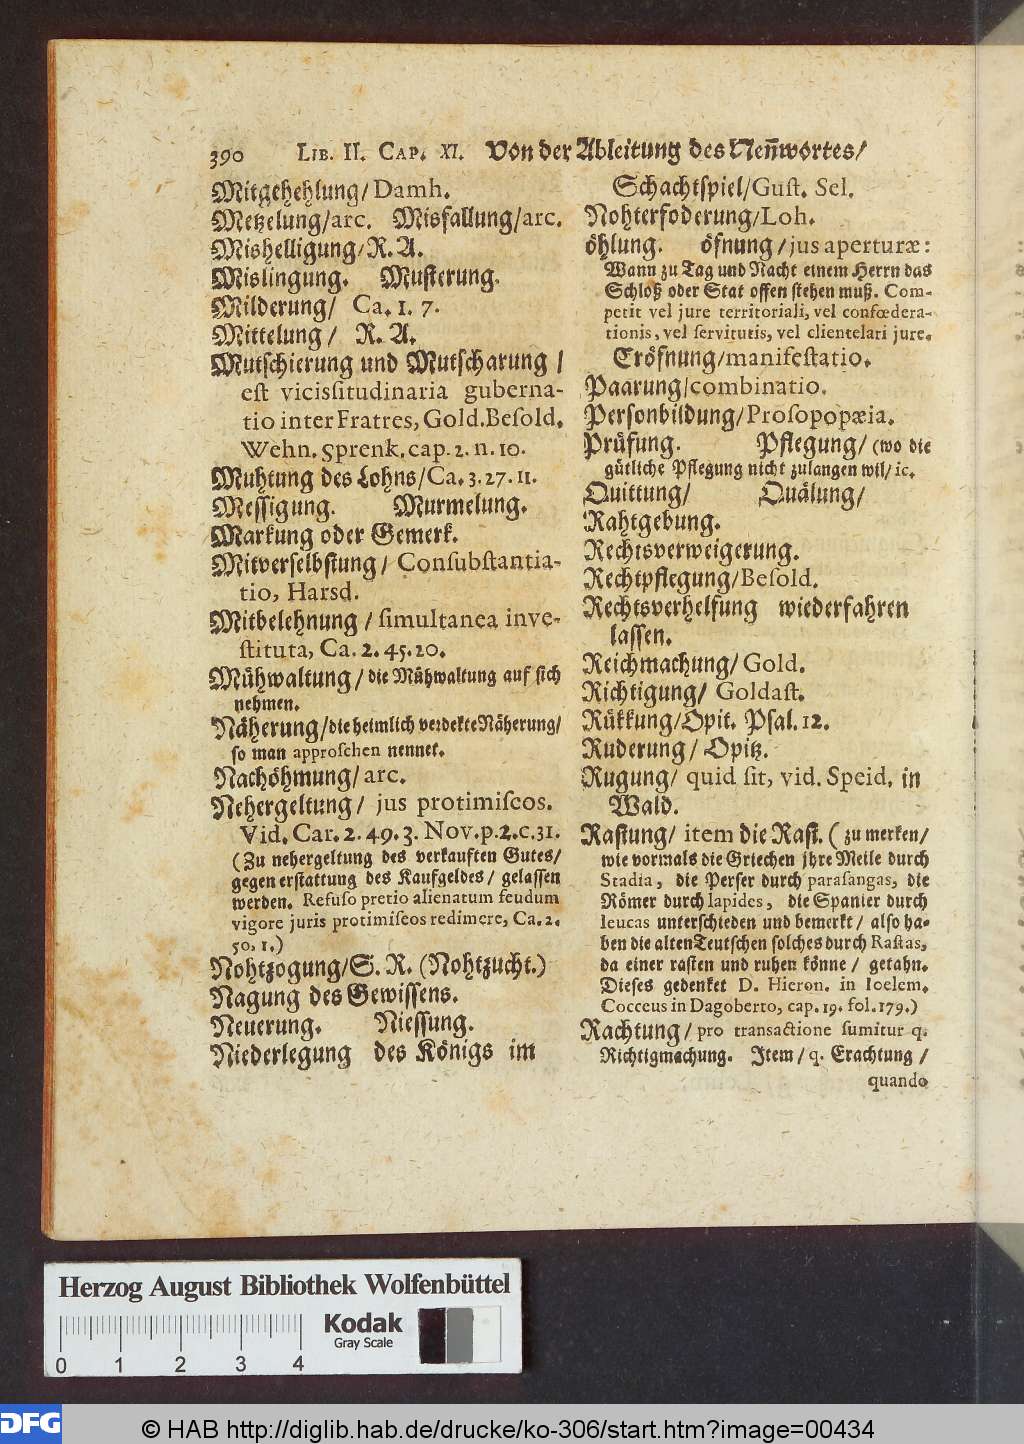 390 LIB. II. CAP. XI. Von der Ableitung des Neñwortes/
Mitgehehlung/ Damh.
Metzelung/arc. Misfallung/arc.
Mishelligung/R. A.
Mislingung. Musterung.
Milderung/ Ca. 1. 7.
Mittelung/ R. A.
Mutschierung und Mutscharung /
eſt viciſsitudinaria guberna-
tio inter Fratres, Gold.Beſold.
Wehn. Sprenk. cap. 2. n. 10.
Muhtung des Lohns/Ca. 3. 27. 11.
Messigung. Murmelung.
Markung oder Gemerk.
Mitverselbstung/ Conſubſtantia-
tio, Harsd.
Mitbelehnung / ſimultanea inve-
ſtituta, Ca. 2. 45. 20.
Mühwaltung/ die Mühwaltung auf sich
nehmen.
Näherung/die heimlich verdekte Näherung/
so man approſchen nennet.
Nachöhmung/ arc.
Nehergeltung/ jus protimiſeos.
Vid. Car. 2. 49. 3. Nov. p. 2. c. 31.
(Zu nehergeltung des verkauften Gutes/
gegen erstattung des Kaufgeldes/ gelassen
werden. Refuſo pretio alienatum feudum
vigore juris protimiſeos redimere, Ca. 2.
50. 1.)
Nohtzogung/S. R. (Nohtzucht.)
Nagung des Gewissens.
Neuerung. Niessung.
Niederlegung des Königs im
Schachtspiel/Guſt. Sel.
Nohterfoderung/Loh.
öhlung. öfnung /jus aperturæ:
Wann zu Tag und Nacht einem Herrn das
Schloß oder Stat offen stehen muß. Com-
petit vel jure territoriali, vel confœdera-
tionis, vel ſervitutis, vel clientelari jure.
Eröfnung/manifeſtatio.
Paarung/combinatio.
Personbildung/Proſopopæia.
Prüfung. Pflegung/ (wo die
gütliche Pflegung nicht zulangen wil/ ic.
Quittung/ Quälung/
Rahtgebung.
Rechtsverweigerung.
Rechtpflegung/Beſold.
Rechtsverhelfung wiederfahren
lassen.
Reichmachung/ Gold.
Richtigung/ Goldaſt.
Rükkung/Opit. Psal. 12.
Ruderung/ Opitz.
Rugung/ quid ſit, vid. Speid. in
Wald.
Rastung/ item die Rast. ( zu merken/
wie vormals die Griechen jhre Meile durch
Stadia, die Perser durch paraſangas, die
Römer durch lapides, die Spanier durch
leucas unterschieden und bemerkt/ also ha-
ben die alten Teutschen solches durch Raſtas,
da einer rasten und ruhen könne/ getahn.
Dieses gedenket D. Hieron. in Ioelem.
Cocceus in Dagoberto, cap. 19. fol. 179.)
Rachtung/ pro transactione ſumitur q.
Richtigmachung. Item/ q. Erachtung /
quando
Herzog August Bibliothek Wolfenbüttel
Kodak
Gray Scale
0 1 2 3 4
DFG © HAB http://diglib.hab.de/drucke/ko-306/start.htm?image=00434